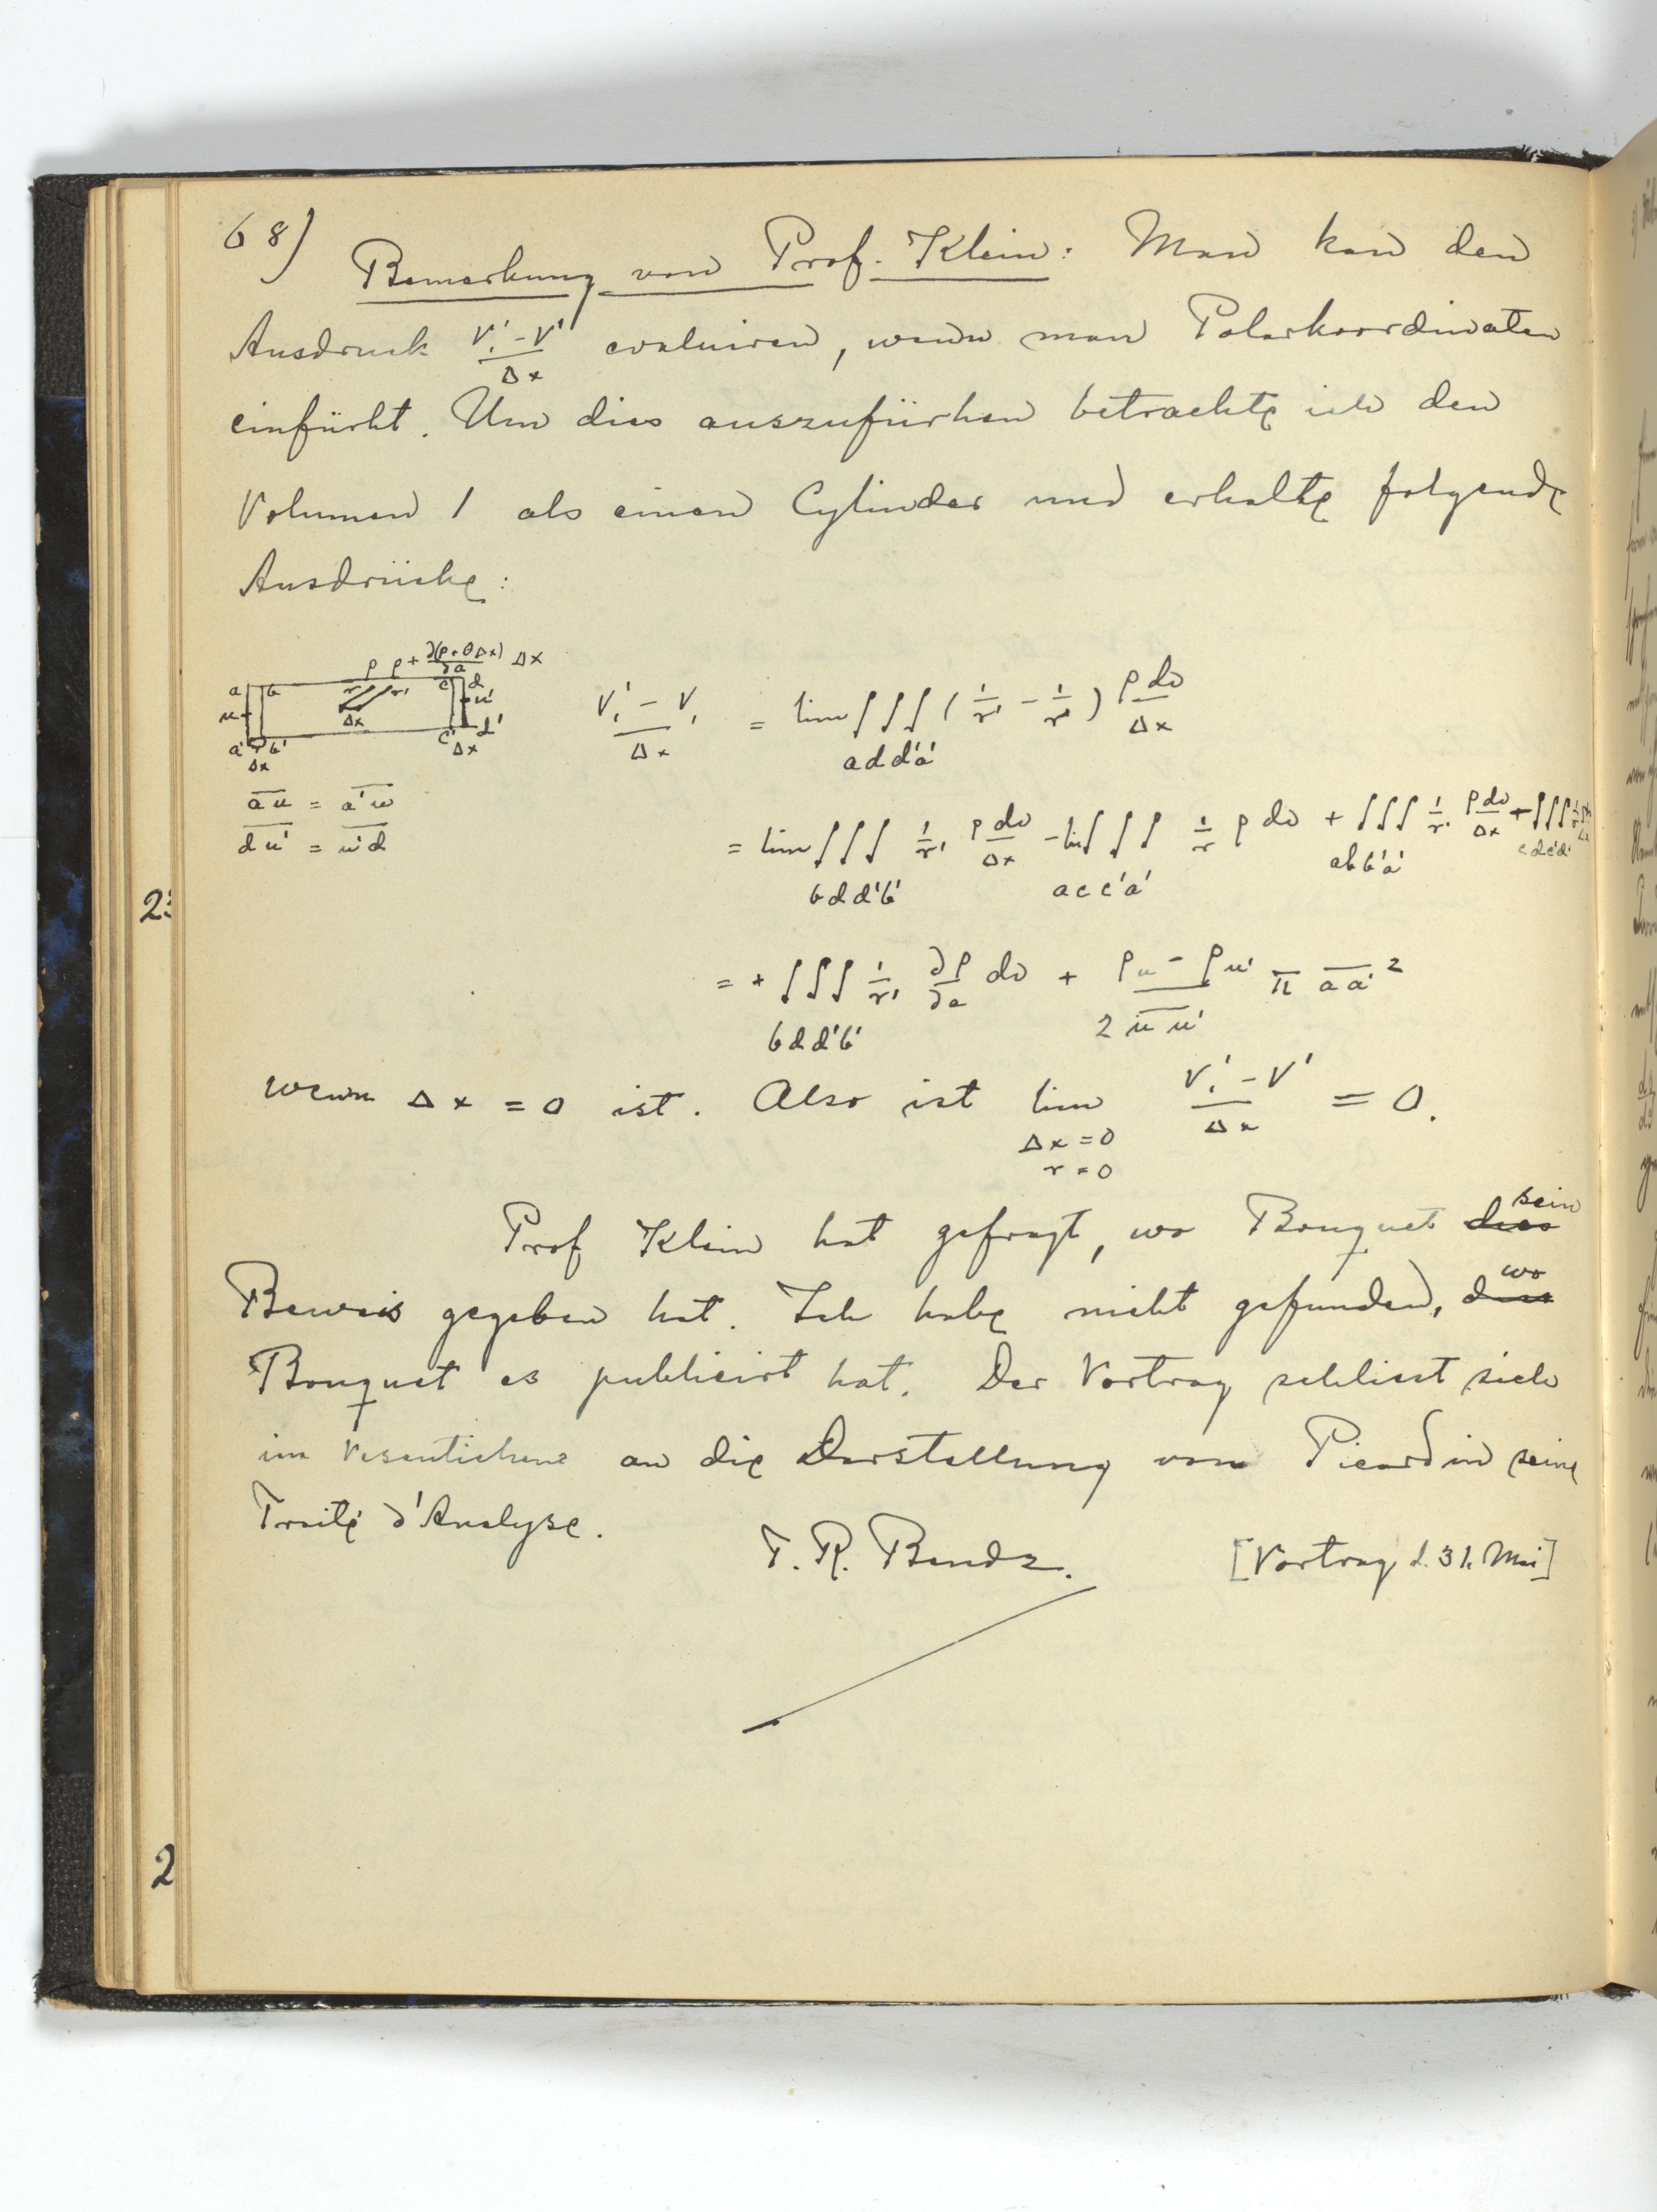 68)
Bemerkung von Prof. Klein: Man kan den
Ausdruck (V₁' - V')/Δx evaluiren, wenn man Polarkoordinaten
einfürht. Um dies auszufürhen betrachte ich den
Volumen 1 als einen Cylinder und erhalte folgende
Ausdrücke:
ρ ρ + ∂(ρ+θΔx)/∂a Δx
a b r r' c d
u Δx u'
a' b' c' d'
Δx Δx
(V₁' - V₁)/Δx = lim ∫∫∫ (1/r' - 1/r) ρ dv/Δx
add'a'
au = a'u
du' = u'd
= lim ∫∫∫ 1/r' ρ dv/Δx - lim ∫∫∫ 1/r ρ dv + ∫∫∫ 1/r' ρ dv/Δx + ∫∫∫
bdd'b' acc'a' abb'a' cdc'd'
= + ∫∫∫ 1/r' ∂ρ/∂a dv + (ρu - ρu')/(2 uu') π aa'²
bdd'b'
wenn Δx = 0 ist. Also ist lim (V₁' - V')/Δx = 0.
Δx = 0
r = 0
Prof Klein hat gefragt, wo Bouquet dies sein
Beweis gegeben hat. Ich habe nicht gefunden, wo
Bouquet es publicirt hat. Der Vortrag schliest sich
im Vesentichens an die Darstellung von Picard in seine
Traité d'Analyse.
T. R. Bendz. [Vortrag d. 31. Mai]
23
2